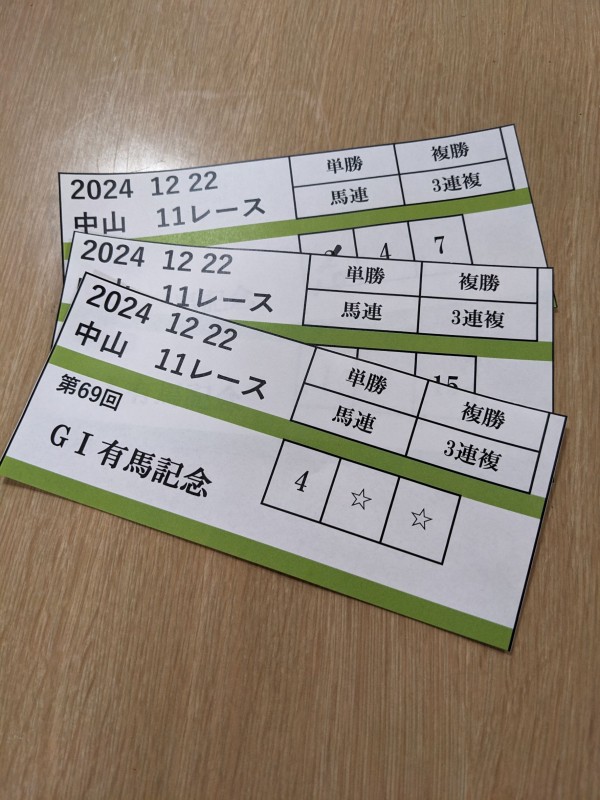 2024 12 22
単勝 複勝
中山 11レース
馬連 3連複
4 7
2024 12 22
単勝 複勝
11レース
馬連 3連複
15
2024 12 22
中山 11レース
単勝 複勝
馬連 3連複
第69回
GⅠ有馬記念
4 ☆ ☆